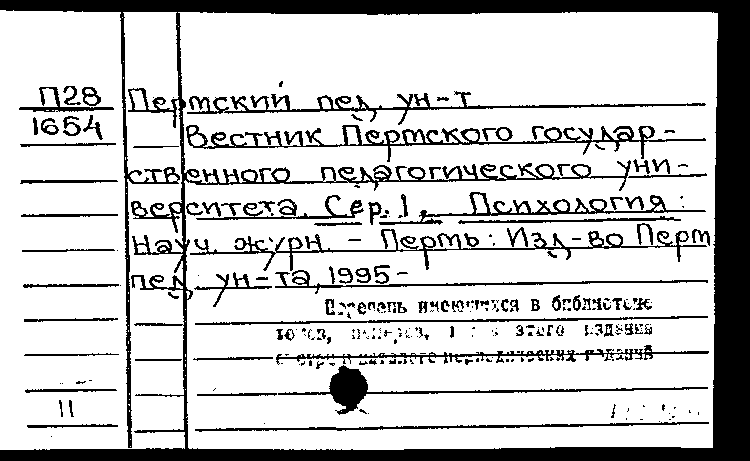 П28 Пермский пед. ун-т
1654 Вестник Пермского государ-
ственного педагогического уни-
верситета. Сер. 1, Психология:
Науч. журн. - Пермь: Изд-во Перм
пед. ун-та, 1995-
Перечень имеющихся в библиотеке
томов, номеров, этого издания
смотри в каталоге периодических изданий
11